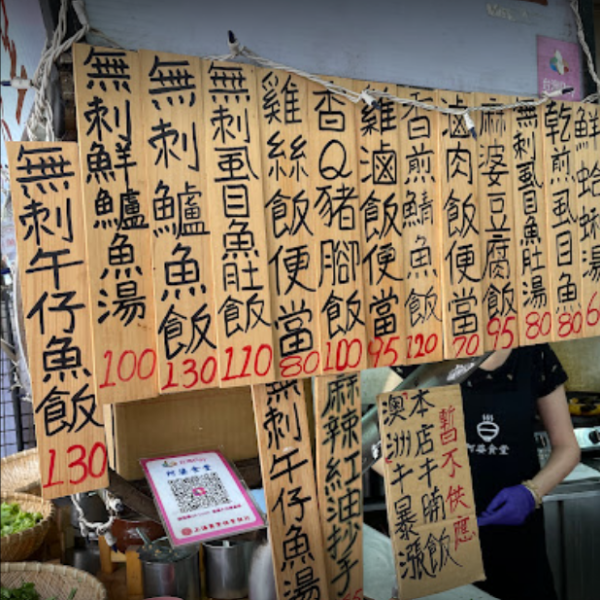 無刺午仔魚飯
130
無刺鮮鱸魚湯
100
無刺鱸魚飯
130
無刺虱目魚肚飯
110
雞絲飯便當
80
香Q豬腳飯
100
雞滷飯便當
95
香煎鯖魚飯
120
滷肉飯便當
70
麻婆豆腐飯
95
無刺虱目魚肚湯
80
乾煎虱目魚
80
鮮蛤蜊湯
無刺午仔魚湯
麻辣紅油抄手
暫不供應
本店牛腩飯
澳洲牛暴漲
阿婆食堂
阿婆食堂